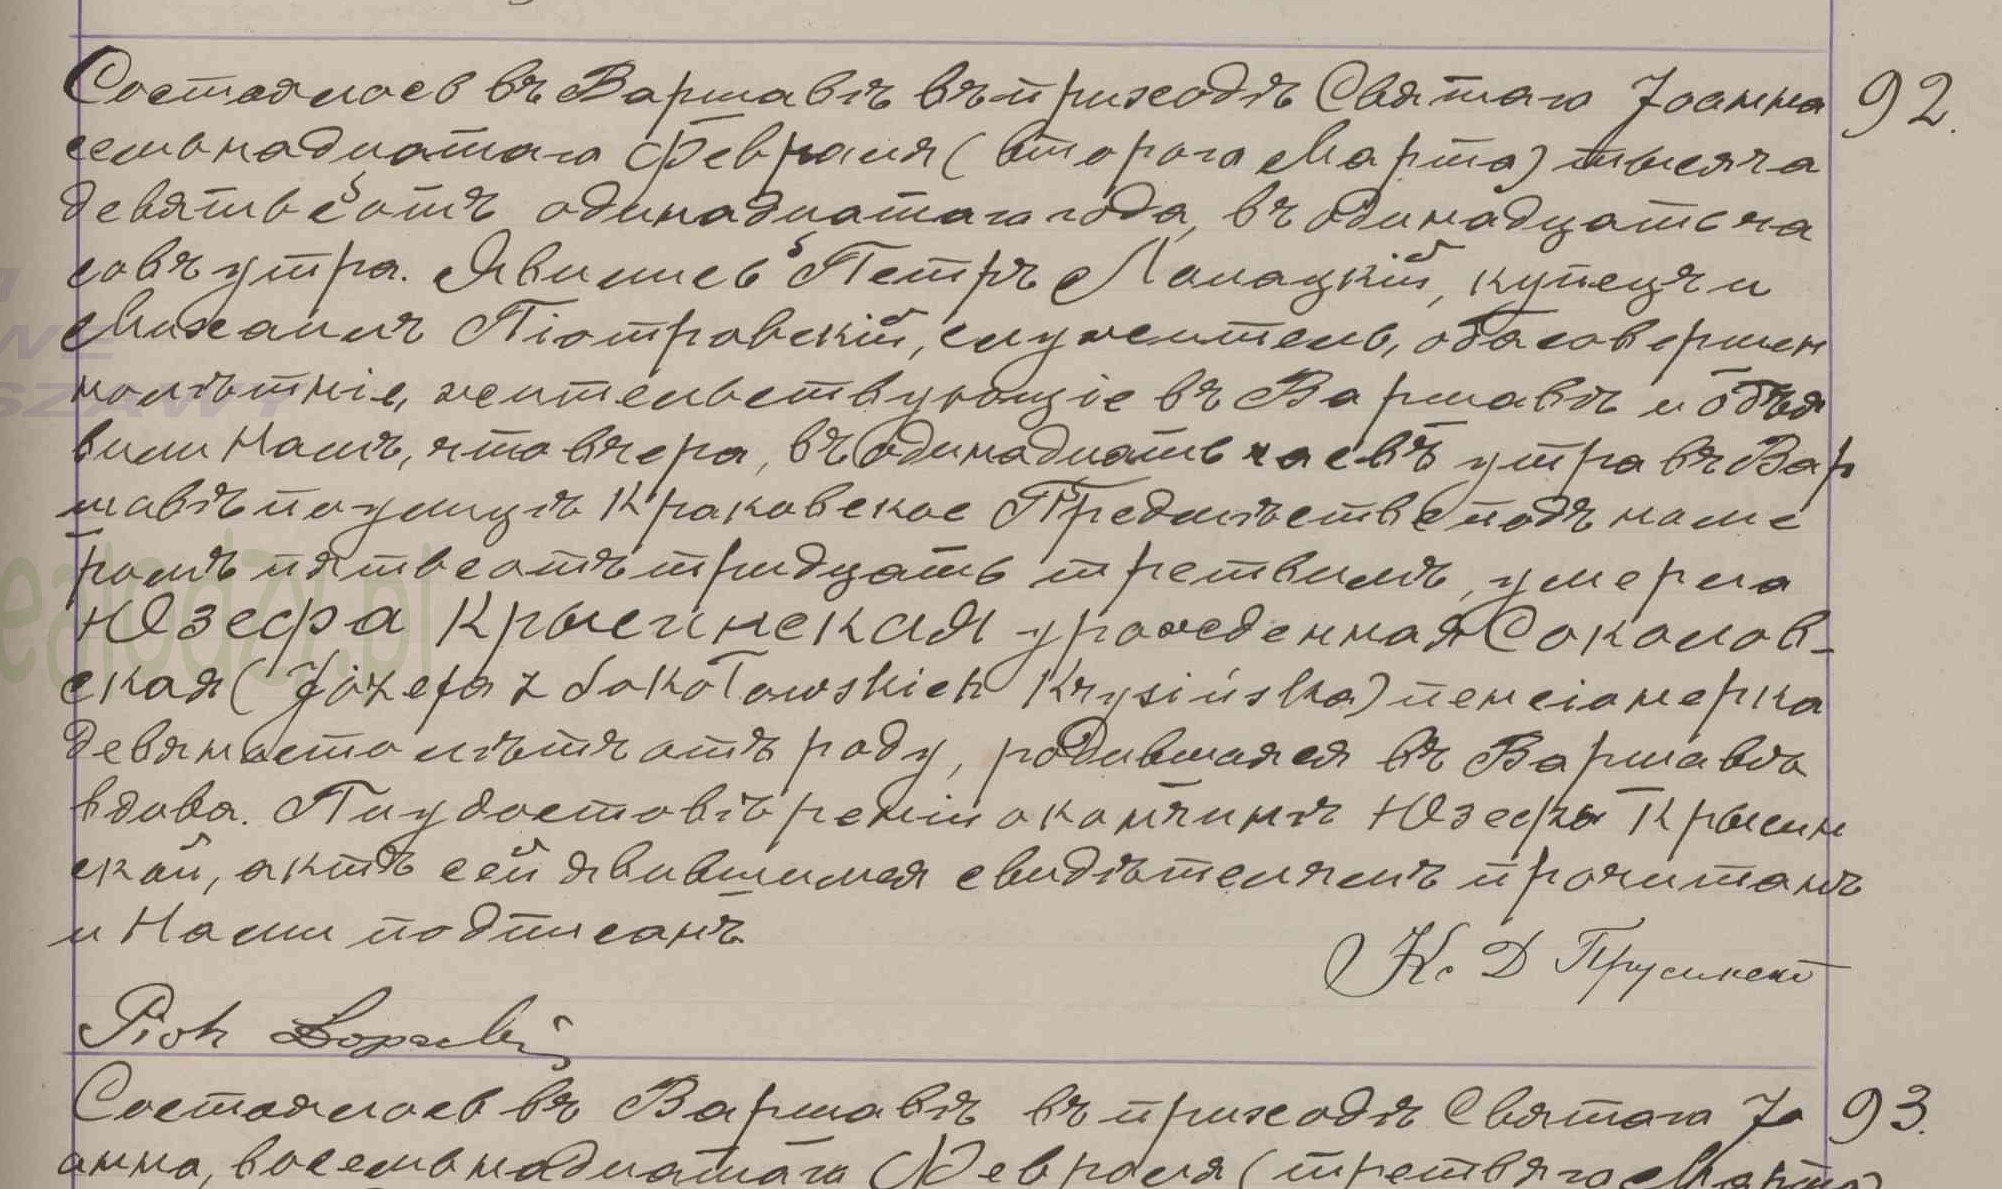 Состоялось въ Варшавѣ въ приходѣ Святаго Іоанна 92.
семьнадцатаго Февраля (втораго Марта) тысяча
девятьсотъ одинадцатаго года, въ одинадцать ча
совъ утра. Явились Петръ Лопацкій, купецъ и
Михаилъ Піотровскій, служитель, оба совершен
нолѣтніе, жительствующіе въ Варшавѣ и объя
вили Намъ, что вчера, въ одинадцать часвъ утра въ Вар
шавѣ по улицѣ Краковское Предмѣстье подъ номе
ромъ пятьсотъ тридцать третьимъ, умерла
Юзефа Крысинская урожденная Соколов-
ская (Józefa z Sokołowskich Krysińska) пенсіонерка
девяносто лѣтъ отъ роду, родившаяся въ Варшавѣ
вдова. По удостовѣреніи о кончинѣ Юзефы Крысин
ской, актъ сей явившимся свидѣтелямъ прочитанъ
и Нами подписанъ
Кс. Д Прусинскі
Piotr
Состоялось въ Варшавѣ въ приходѣ Святаго Іо 93.
анна, восемьнадцатаго Февраля (третьяго Марта)